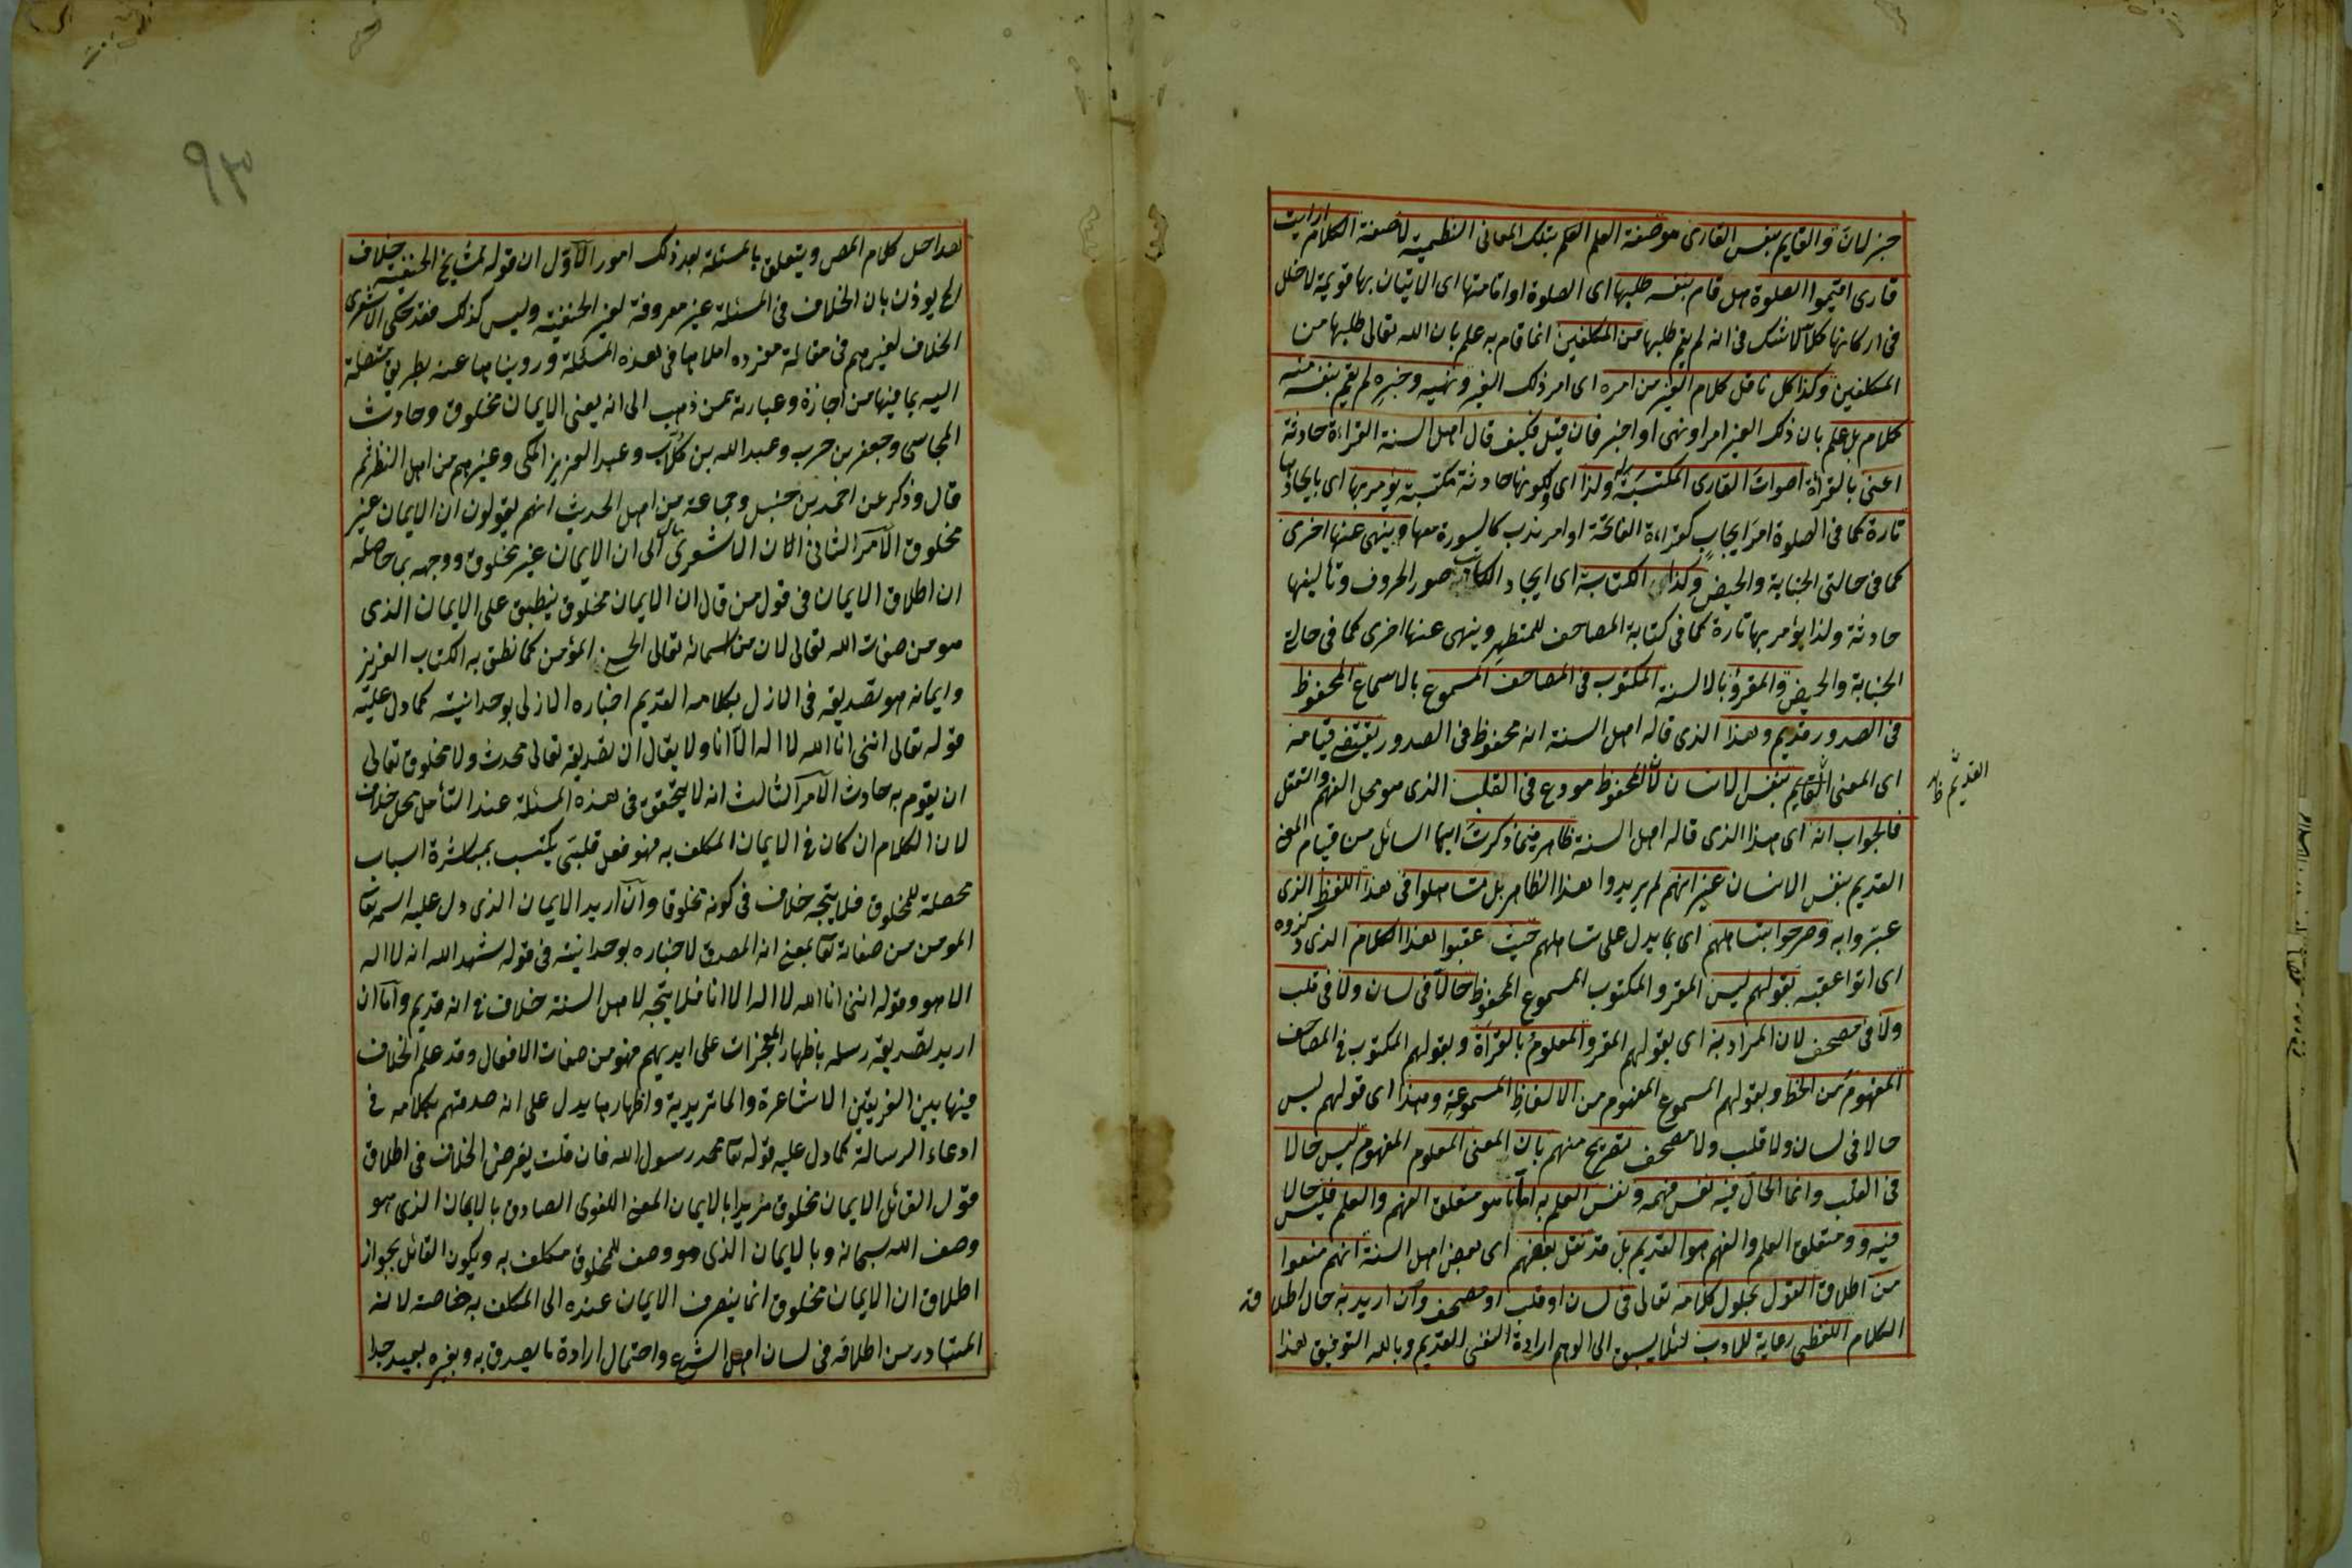 جزلان والقايم بنفس القارى هو صفة العلم العلم بتلك المعانى النظمية لا صفة الكلام ارايت
قارى اقيموا الصلوة هل قام بنفسه طلبها اى الصلوة او اقامتها اى الاتيان بها قويمة لا خلل
فى اركانها كلا لا شك فى انه لم يقم طلبها من المكلفين انما قام به علم بان الله تعالى طلبها من
المكلفين وكذا كل ناقل كلام الغير من امره اى امر ذلك الغير ونهيه وخبره لم يقم بنفسه منه
كلام بل علم بان ذلك الغير امر او نهى او اخبر فان قيل فكيف قال اهل السنة القراءة حادثة
اعنى بالقرأة اصوات القارى المكتسبة له ولذا اى ولكونها حادثة مكتسبة يؤمر بها اى بايجادها
تارة كما فى الصلوة امر ايجاب كقراءة الفاتحة او امر ندب كالسورة معها وينهى عنها اخرى
كما فى حالتى الجنابة والحيض وكذا الكتابة اى ايجاد الكاتب صور الحروف وتأليفها
حادثة ولذا يؤمر بها تارة كما فى كتابة المصاحف للمتطهر وينهى عنها اخرى كما فى حالة
الجنابة والحيض والمقرؤ بالالسنة المكتوب فى المصاحف المسموع بالاسماع المحفوظ
فى الصدور قديم وهذا الذى قاله اهل السنة انه محفوظ فى الصدور يقتضى قيامه
اى المعنى القايم بنفس الانسان لان المحفوظ مودع فى القلب الذى هو محل الفهم والتعقل
القديم ظاهر
فالجواب انه اى هذا الذى قاله اهل السنة ظاهر فيما ذكرت ايها السائل من قيام المعنى
القديم بنفس الانسان غير انهم لم يريدوا هذا الظاهر بل تساهلوا فى هذا اللفظ الذى
عبروا به وصرحوا بتساهلهم اى بما يدل على تساهلهم حيث عقبوا هذا الكلام الذى ذكروه
اى اتوا عقبه بقولهم ليس المقرو المكتوب المسموع المحفوظ حالا فى لسان ولا فى قلب
ولا فى مصحف لان المراد به اى بقولهم المقرو المعلوم بالقرأة وبقولهم المكتوب فى المصاحف
المفهوم من الخط وبقولهم المسموع المفهوم من الالفاظ المسموعة وهذا اى قولهم ليس
حالا فى لسان ولا قلب ولا مصحف تصريح منهم بان المعنى المعلوم المفهوم ليس حالا
فى القلب وانما الحال فيه نفس فهمه ونفس العلم به اما ما هو متعلق الفهم والعلم فليس حالا
فيه و ومتعلق العلم والفهم هو القديم بل قد نقل بعضهم اى بعض اهل السنة انهم منعوا
من اطلاق القول بحلول كلامه تعالى فى لسان او قلب او مصحف وان اريد به حال اطلاقه
الكلام اللفظى رعاية للادب لئلا يسبق الى الوهم ارادة النفسى القديم وبالله التوفيق هذا
٩٣
هذا حل كلام المص ويتعلق بالمسئلة بعد ذلك امور الاول ان قوله لمشايخ الحنفية خلاف
الخ يوذن بان الخلاف فى المسئلة غير معروفة لغير الحنفية وليس كذلك فقد حكى الاشعرى
الخلاف لغيرهم فى مقالة مفرده املاها فى هذه المسئلة ورويناها عنه بطريق متصلة
اليه بما فيها من اجازة وعبارته ممن ذهب الى انه يعنى الايمان مخلوق وحادث
المجاسى وجعفر بن حرب وعبد الله بن كلاب وعبد العزيز المكى وغيرهم من اهل النظر ثم
قال وذكر عن احمد بن حنبل وجماعة من اهل الحديث انهم يقولون ان الايمان غير
مخلوق الامر الثانى ان الاشعرى مال الى ان الايمان غير مخلوق ووجهه بما حاصله
ان اطلاق الايمان فى قول من قال ان الايمان مخلوق ينطبق على الايمان الذى
هو من صفات الله تعالى لان من اسمائه تعالى الحسنى المؤمن كما نطق به الكتاب العزيز
وايمانه هو تصديقه فى الازل بكلامه القديم اخباره الازلى بوحدانيته كما دل عليه
قوله تعالى اننى انا الله لا اله الا انا ولا يقال ان تصديقه تعالى محدث ولا مخلوق تعالى
ان يقوم به حادث الامر الثالث انه لا يتحقق فى هذه المسئلة عند التأمل محل خلاف
لان الكلام ان كان فى الايمان المكلف به فهو فعل قلبى يكتسب بمباشرة اسباب
محصلة للمخلوق فلا يتجه خلاف فى كونه مخلوقا وان اريد الايمان الذى دل عليه اسمه تعا
المومن من صفاته تعا بمعنى انه المصدق لاخباره بوحدانيته فى قوله شهد الله انه لا اله
الا هو وقوله اننى انا الله لا اله الا انا فلا يتجه لاهل السنة خلاف فى انه قديم واما ان
اريد تصديقه رسله باظهار المعجزات على ايديهم فهو من صفات الافعال وقد علم الخلاف
فيها بين الفريقين الاشاعرة والماتريدية واظهارها يدل على انه صدقهم بكلامه فى
ادعاء الرسالة كما دل عليه قوله تعا محمد رسول الله فان قلت يفرض الخلاف فى اطلاق
قول القائل الايمان مخلوق مريدا بالايمان المعنى اللغوى الصادق بالايمان الذى هو
وصف الله سبحانه وبالايمان الذى هو وصف للمخلوق مكلف به ويكون القائل بجواز
اطلاق ان الايمان مخلوق انما ينصرف الايمان عنده الى المكلف به خاصة لانه
المتبادر من اطلاقه فى لسان اهل الشرع واحتمال ارادة ما يصدق به وبغيره بعيد جدا